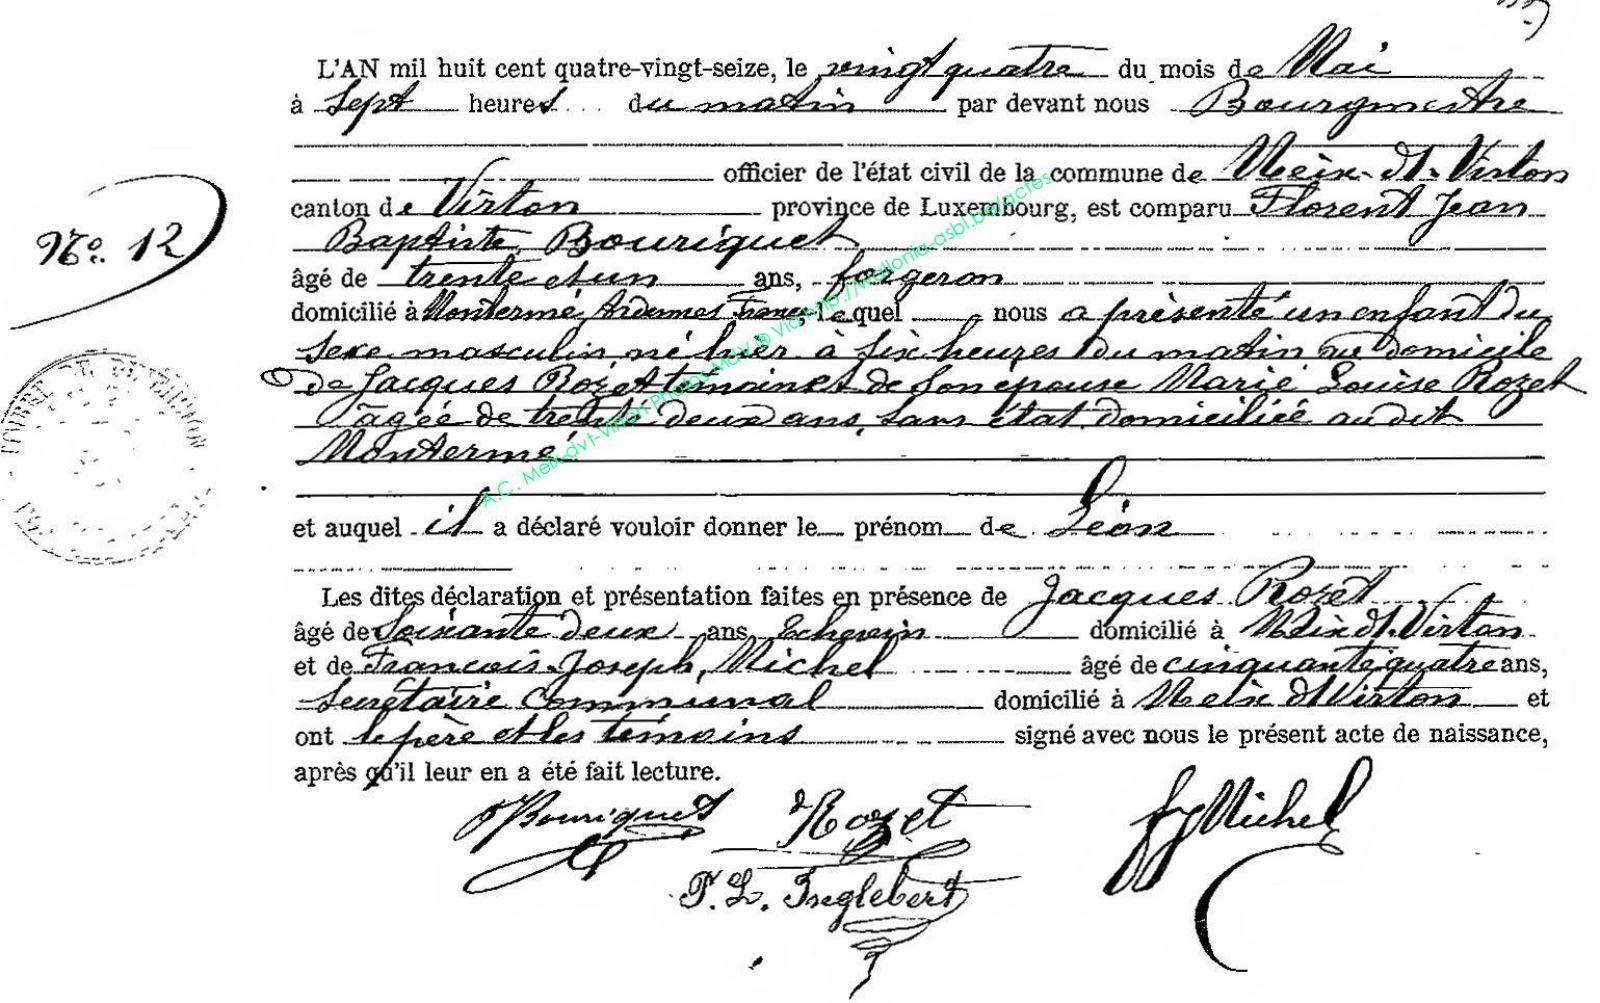 L'AN mil huit cent quatre-vingt-seize, le vingt quatre du mois de Mai
à Sept heures du matin par devant nous Bourgmestre
officier de l'état civil de la commune de Meix-dt-Virton
canton de Virton province de Luxembourg, est comparu Florent Jean
Baptiste Bouriquet
Nº. 12
âgé de trente et un ans, forgeron
domicilié à Montermé, Ardennes, France, lequel nous a présenté un enfant du
sexe masculin, né hier à six heures du matin au domicile
de Jacques Rozet témoin et de son épouse Marie Louise Rozet
âgée de trente deux ans, sans état, domiciliée au dit
Montermé
et auquel il a déclaré vouloir donner le prénom de Léon
Les dites déclaration et présentation faites en présence de Jacques Rozet
âgé de Soixante deux ans Echevin domicilié à Meix dt. Virton
et de François-Joseph, Michel âgé de cinquante quatre ans,
Secrétaire Communal domicilié à Meix dt Virton et
ont le père et les témoins signé avec nous le présent acte de naissance,
après qu'il leur en a été fait lecture.
Bouriquet Rozet Michel
F. L. Inglebert
A.C. Meix-dvt-Virton